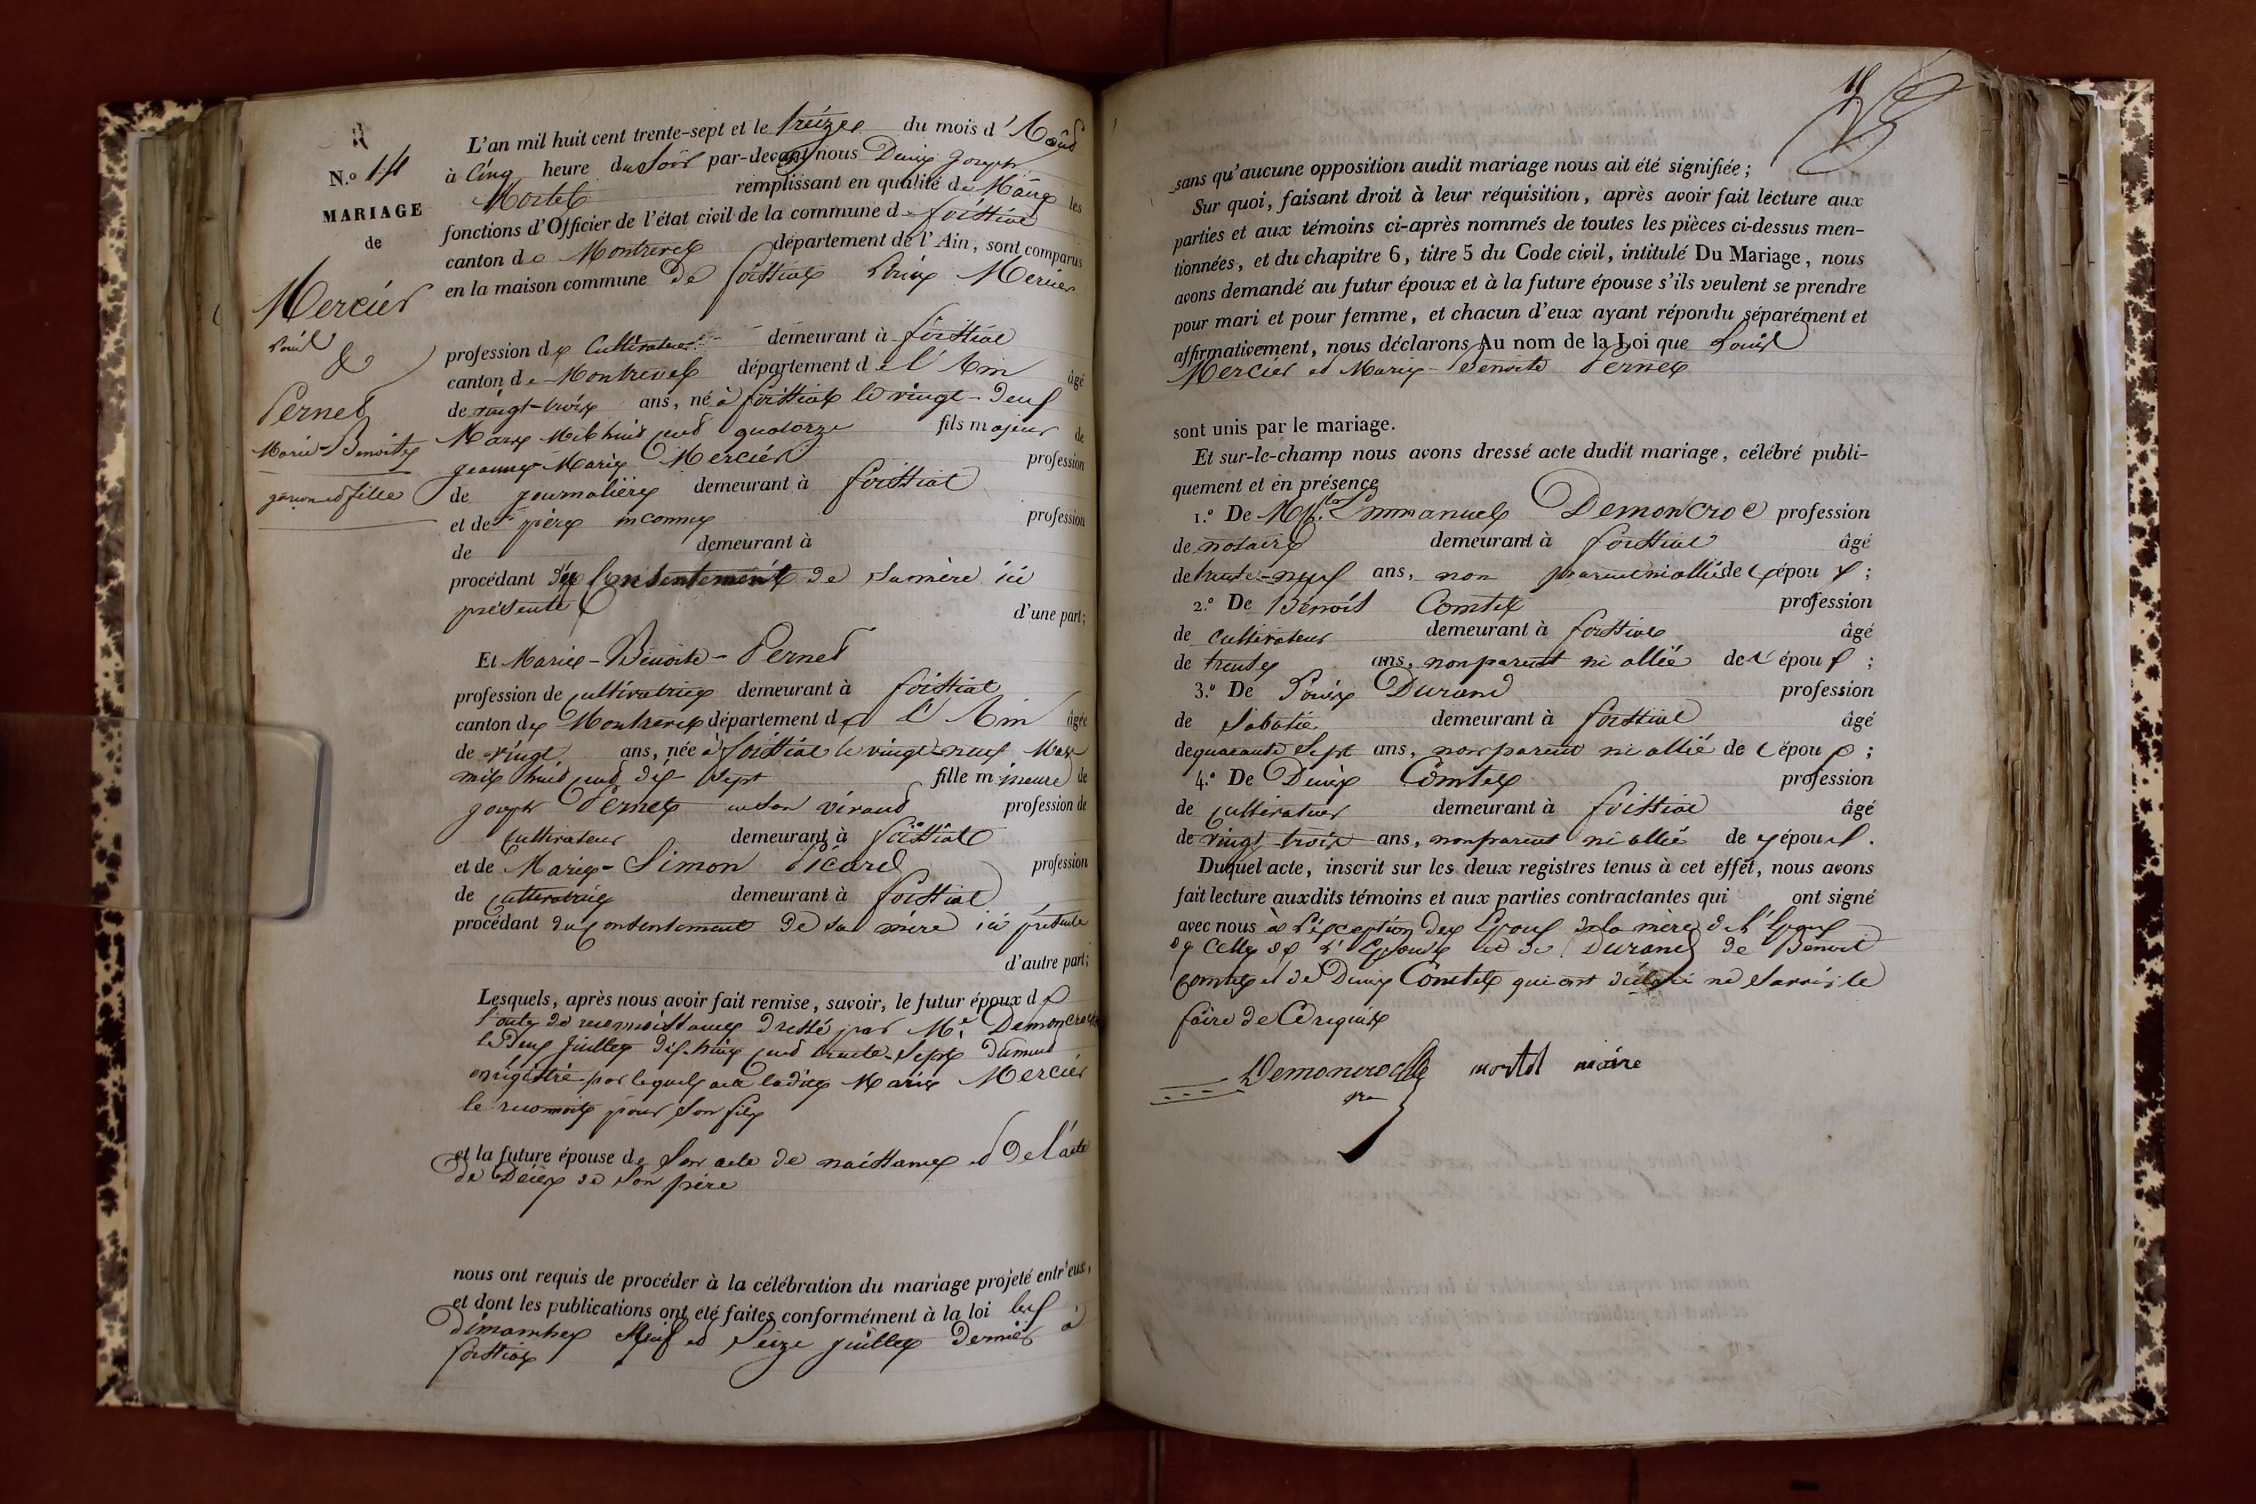 N.º 14
MARIAGE
de
Mercier
Louis
&
Pernet
Marie-Benoite
garçon et fille
L'an mil huit cent trente-sept et le treize du mois d'Aoûst
à Cinq heure du Soir par-devant nous Denis Joseph
Mortel remplissant en qualité de Maire les
fonctions d'Officier de l'état civil de la commune de foissiat
canton de Montrevel département de l'Ain, sont comparus
en la maison commune de foissiat Louis Mercier
profession de Cultivateur demeurant à foissiat
canton de Montrevel département de l'Ain âgé
de vingt-trois ans, né à foissiat le vingt-deux
Mars mil huit cent quatorze fils majeur de
Jeanne-Marie Mercier profession
de journalière demeurant à foissiat
et de père inconnu profession
de demeurant à
procédant du Consentement de sa mère ici
présente d'une part;
Et Marie-Benoite-Pernet
profession de cultivatrice demeurant à foissiat
canton de Montrevel département de l'Ain âgée
de vingt ans, née à foissiat le vingt-neuf Mars
mil huit cent dix-sept fille mineure de
joseph Pernet en son vivant profession de
Cultivateur demeurant à foissiat
et de Marie-Simon Picard profession
de cultivatrice demeurant à foissiat
procédant du consentement de sa mère ici présente
d'autre part;
Lesquels, après nous avoir fait remise, savoir, le futur époux de
l'acte de reconnoissance dressé par Me. Demoncroc
le Deux juillet dix-huit cent trente-sept dument
enrégistré par lequel acte ladite Marie Mercier
le reconnoit pour son fils
et la future épouse de son acte de naissance et de l'acte
de Décès de son père
nous ont requis de procéder à la célébration du mariage projeté entr'eux,
et dont les publications ont été faites conformément à la loi les
Dimanches Neuf et Seize juillet dernier à
foissiat
sans qu'aucune opposition audit mariage nous ait été signifiée;
Sur quoi, faisant droit à leur réquisition, après avoir fait lecture aux
parties et aux témoins ci-après nommés de toutes les pièces ci-dessus men-
tionnées, et du chapitre 6, titre 5 du Code civil, intitulé Du Mariage, nous
avons demandé au futur époux et à la future épouse s'ils veulent se prendre
pour mari et pour femme, et chacun d'eux ayant répondu séparément et
affirmativement, nous déclarons Au nom de la Loi que Louis
Mercier et Marie-Benoite Pernet
sont unis par le mariage.
Et sur-le-champ nous avons dressé acte dudit mariage, célébré publi-
quement et en présence
1.º De Emmanuel Demoncroc profession
de notaire demeurant à foissiat âgé
de trente-neuf ans, non parent ni allié de l'époux;
2.º De Benoit Comtet profession
de cultivateur demeurant à foissiat âgé
de trente ans, non parent ni allié de l'époux;
3.º De Louis Durand profession
de Sabotié demeurant à foissiat âgé
de quarante Sept ans, non parent ni allié de l'époux;
4.º De Denis Comtet profession
de cultivateur demeurant à foissiat âgé
de vingt-trois ans, non parent ni allié de l'époux.
Duquel acte, inscrit sur les deux registres tenus à cet effet, nous avons
fait lecture auxdits témoins et aux parties contractantes qui ont signé
avec nous à l'éxception des Epoux de la mère de l'Epoux
de Celle de l'Epouse et de Durand de Benoit
Comtet et de Denis Comtet qui ont déclaré ne savoir le
faire de Ce requis
Demoncroc mortel maire